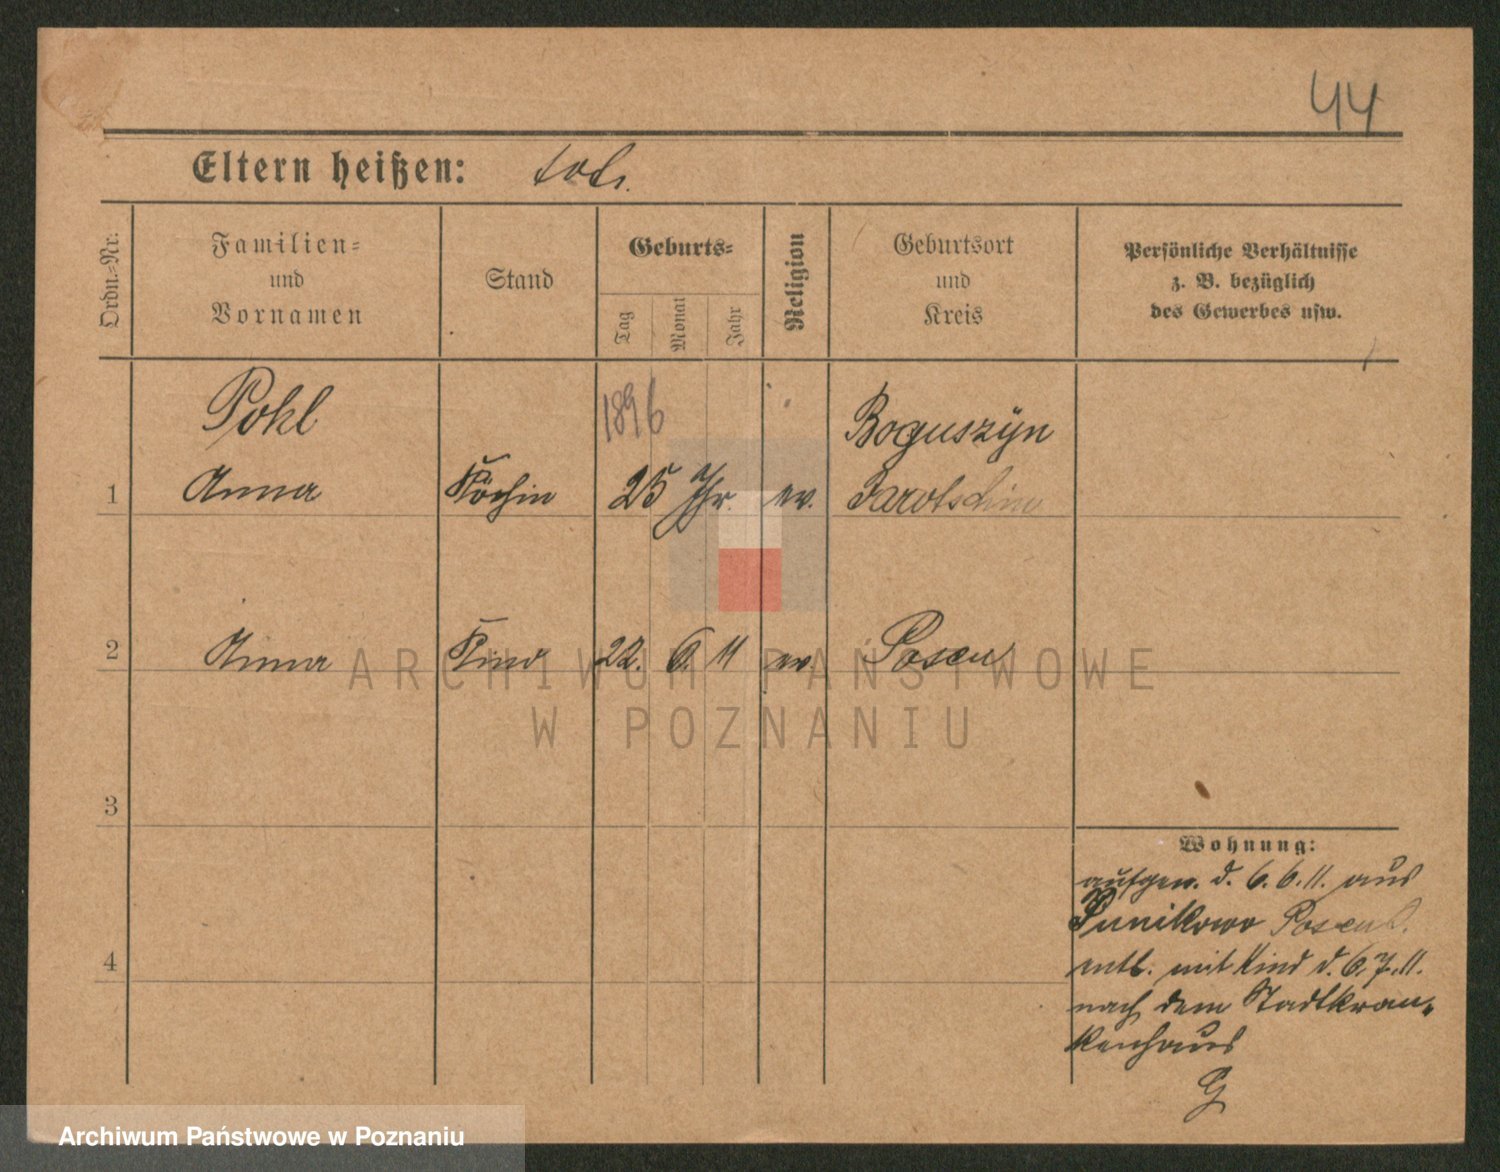 44
Eltern heißen: tot.
Ordn.-Nr.
Familien- und Vornamen
Stand
Geburts-
Tag
Monat
Jahr
Religion
Geburtsort und Kreis
Persönliche Verhältnisse
z. B. bezüglich
des Gewerbes usw.
Pohl 1896 Boguszÿn
1 Anna Köchin 25 Jhr. ev. Jarotschin
2 Anna Kind 22. 6. 11 ev. Posen
3
Wohnung:
aufgen. d. 6.6.11. aus
Junikowo Posen
4
entl. mit Kind d. 6.7.11.
nach dem Stadtkran-
kenhaus
G
ARCHIWUM PAŃSTWOWE
W POZNANIU
Archiwum Państwowe w Poznaniu